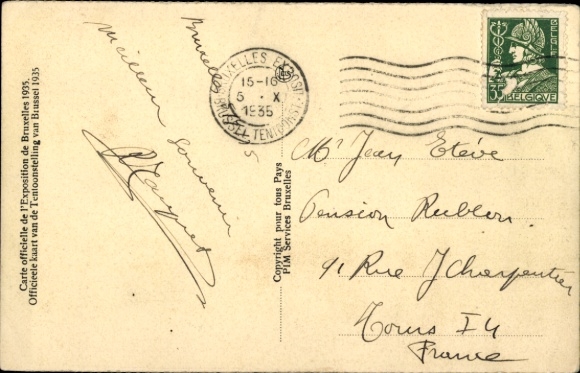 Carte officielle de l'Exposition de Bruxelles 1935.
Officieele kaart van de Tentoonstelling van Brussel 1935
Meilleur souvenir
Copyright pour tous Pays
PIM Services Bruxelles
BRUXELLES EXPOSITION
15-16
5 · X
1935
BRUSSEL-TENTOONST.
BELGIE
35
BELGIQUE
Mr Jean Etève
Pension Rublon
91 Rue J Charpentier
Tours I&L
France